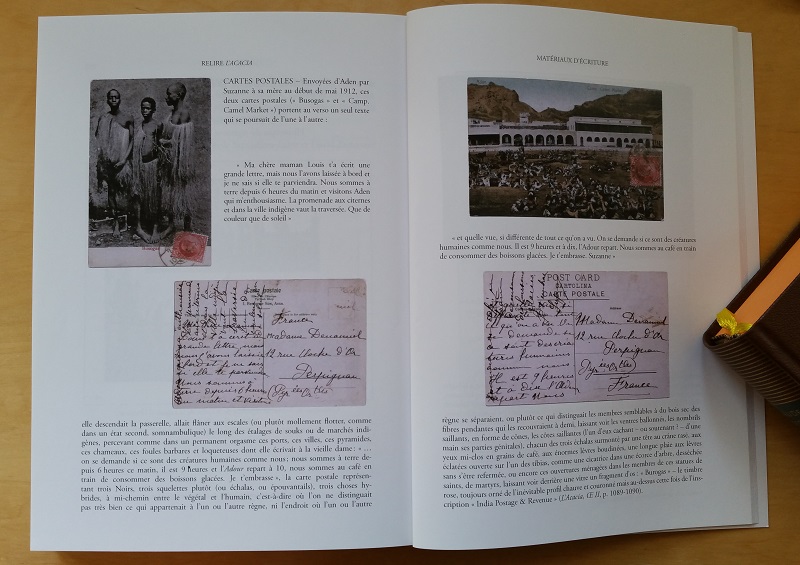 RELIRE L'ACACIA
CARTES POSTALES – Envoyées d'Aden par
Suzanne à sa mère au début de mai 1912, ces
deux cartes postales (« Busogas » et « Camp.
Camel Market ») portent au verso un seul texte
qui se poursuit de l'une à l'autre :
« Ma chère maman Louis t'a écrit une
grande lettre, mais nous l'avons laissée à bord et
je ne sais si elle te parviendra. Nous sommes à
terre depuis 6 heures du matin et visitons Aden
qui m'enthousiasme. La promenade aux citernes
et dans la ville indigène vaut la traversée. Que de
couleur que de soleil »
Busogas
Carte postale
France
Madame Denamiel
12 rue Cloche d'Or
Perpignan
(Pyr. Ortles)
elle descendait la passerelle, allait flâner aux escales (ou plutôt mollement flotter, comme
dans un état second, somnambulique) le long des étalages de souks ou de marchés indi-
gènes, percevant comme dans un permanent orgasme ces ports, ces villes, ces pyramides,
ces chameaux, ces foules barbares et loqueteuses dont elle écrivait à la vieille dame : « …
on se demande si ce sont des créatures humaines comme nous : nous sommes à terre de-
puis 6 heures ce matin, il est 9 heures et l'Adour repart à 10, nous sommes au café en
train de consommer des boissons glacées. Je t'embrasse », la carte postale représen-
tant trois Noirs, trois squelettes plutôt (ou échalas, ou épouvantails), trois choses hy-
brides, à mi-chemin entre le végétal et l'humain, c'est-à-dire où l'on ne distinguait
pas très bien ce qui appartenait à l'un ou l'autre règne, ni l'endroit où l'un ou l'autre
MATÉRIAUX D'ÉCRITURE
« et quelle vue, si différente de tout ce qu'on a vu. On se demande si ce sont des créatures
humaines comme nous. Il est 9 heures et à dix, l'Adour repart. Nous sommes au café en train
de consommer des boissons glacées. Je t'embrasse. Suzanne »
POST CARD
CARTOLINA
CARTE POSTALE
Madame Denamiel
12 rue Cloche d'Or
Perpignan
(Pyrées Ortles)
France
règne se séparaient, ou plutôt ce qui distinguait les membres semblables à du bois sec des
fibres pendantes qui les recouvraient à demi, laissant voir les ventres ballonnés, les nombrils
saillants, en forme de cônes, les côtes saillantes (l'un d'eux cachant – ou soutenant ? – d'une
main ses parties génitales), chacun des trois échalas surmonté par une tête au crâne rasé, aux
yeux mi-clos en grains de café, aux énormes lèvres boudinées, une longue plaie aux lèvres
éclatées ouverte sur l'un des tibias, comme une cicatrice dans une écorce d'arbre, desséchée
sans s'être refermée, ou encore ces ouvertures ménagées dans les membres de ces statues de
saints, de martyrs, laissant voir derrière une vitre un fragment d'os : « Busogas » – le timbre
rose, toujours orné de l'inévitable profil chauve et couronné mais au-dessus cette fois de l'ins-
cription « India Postage & Revenue » (L'Acacia, Œ II, p. 1089-1090).